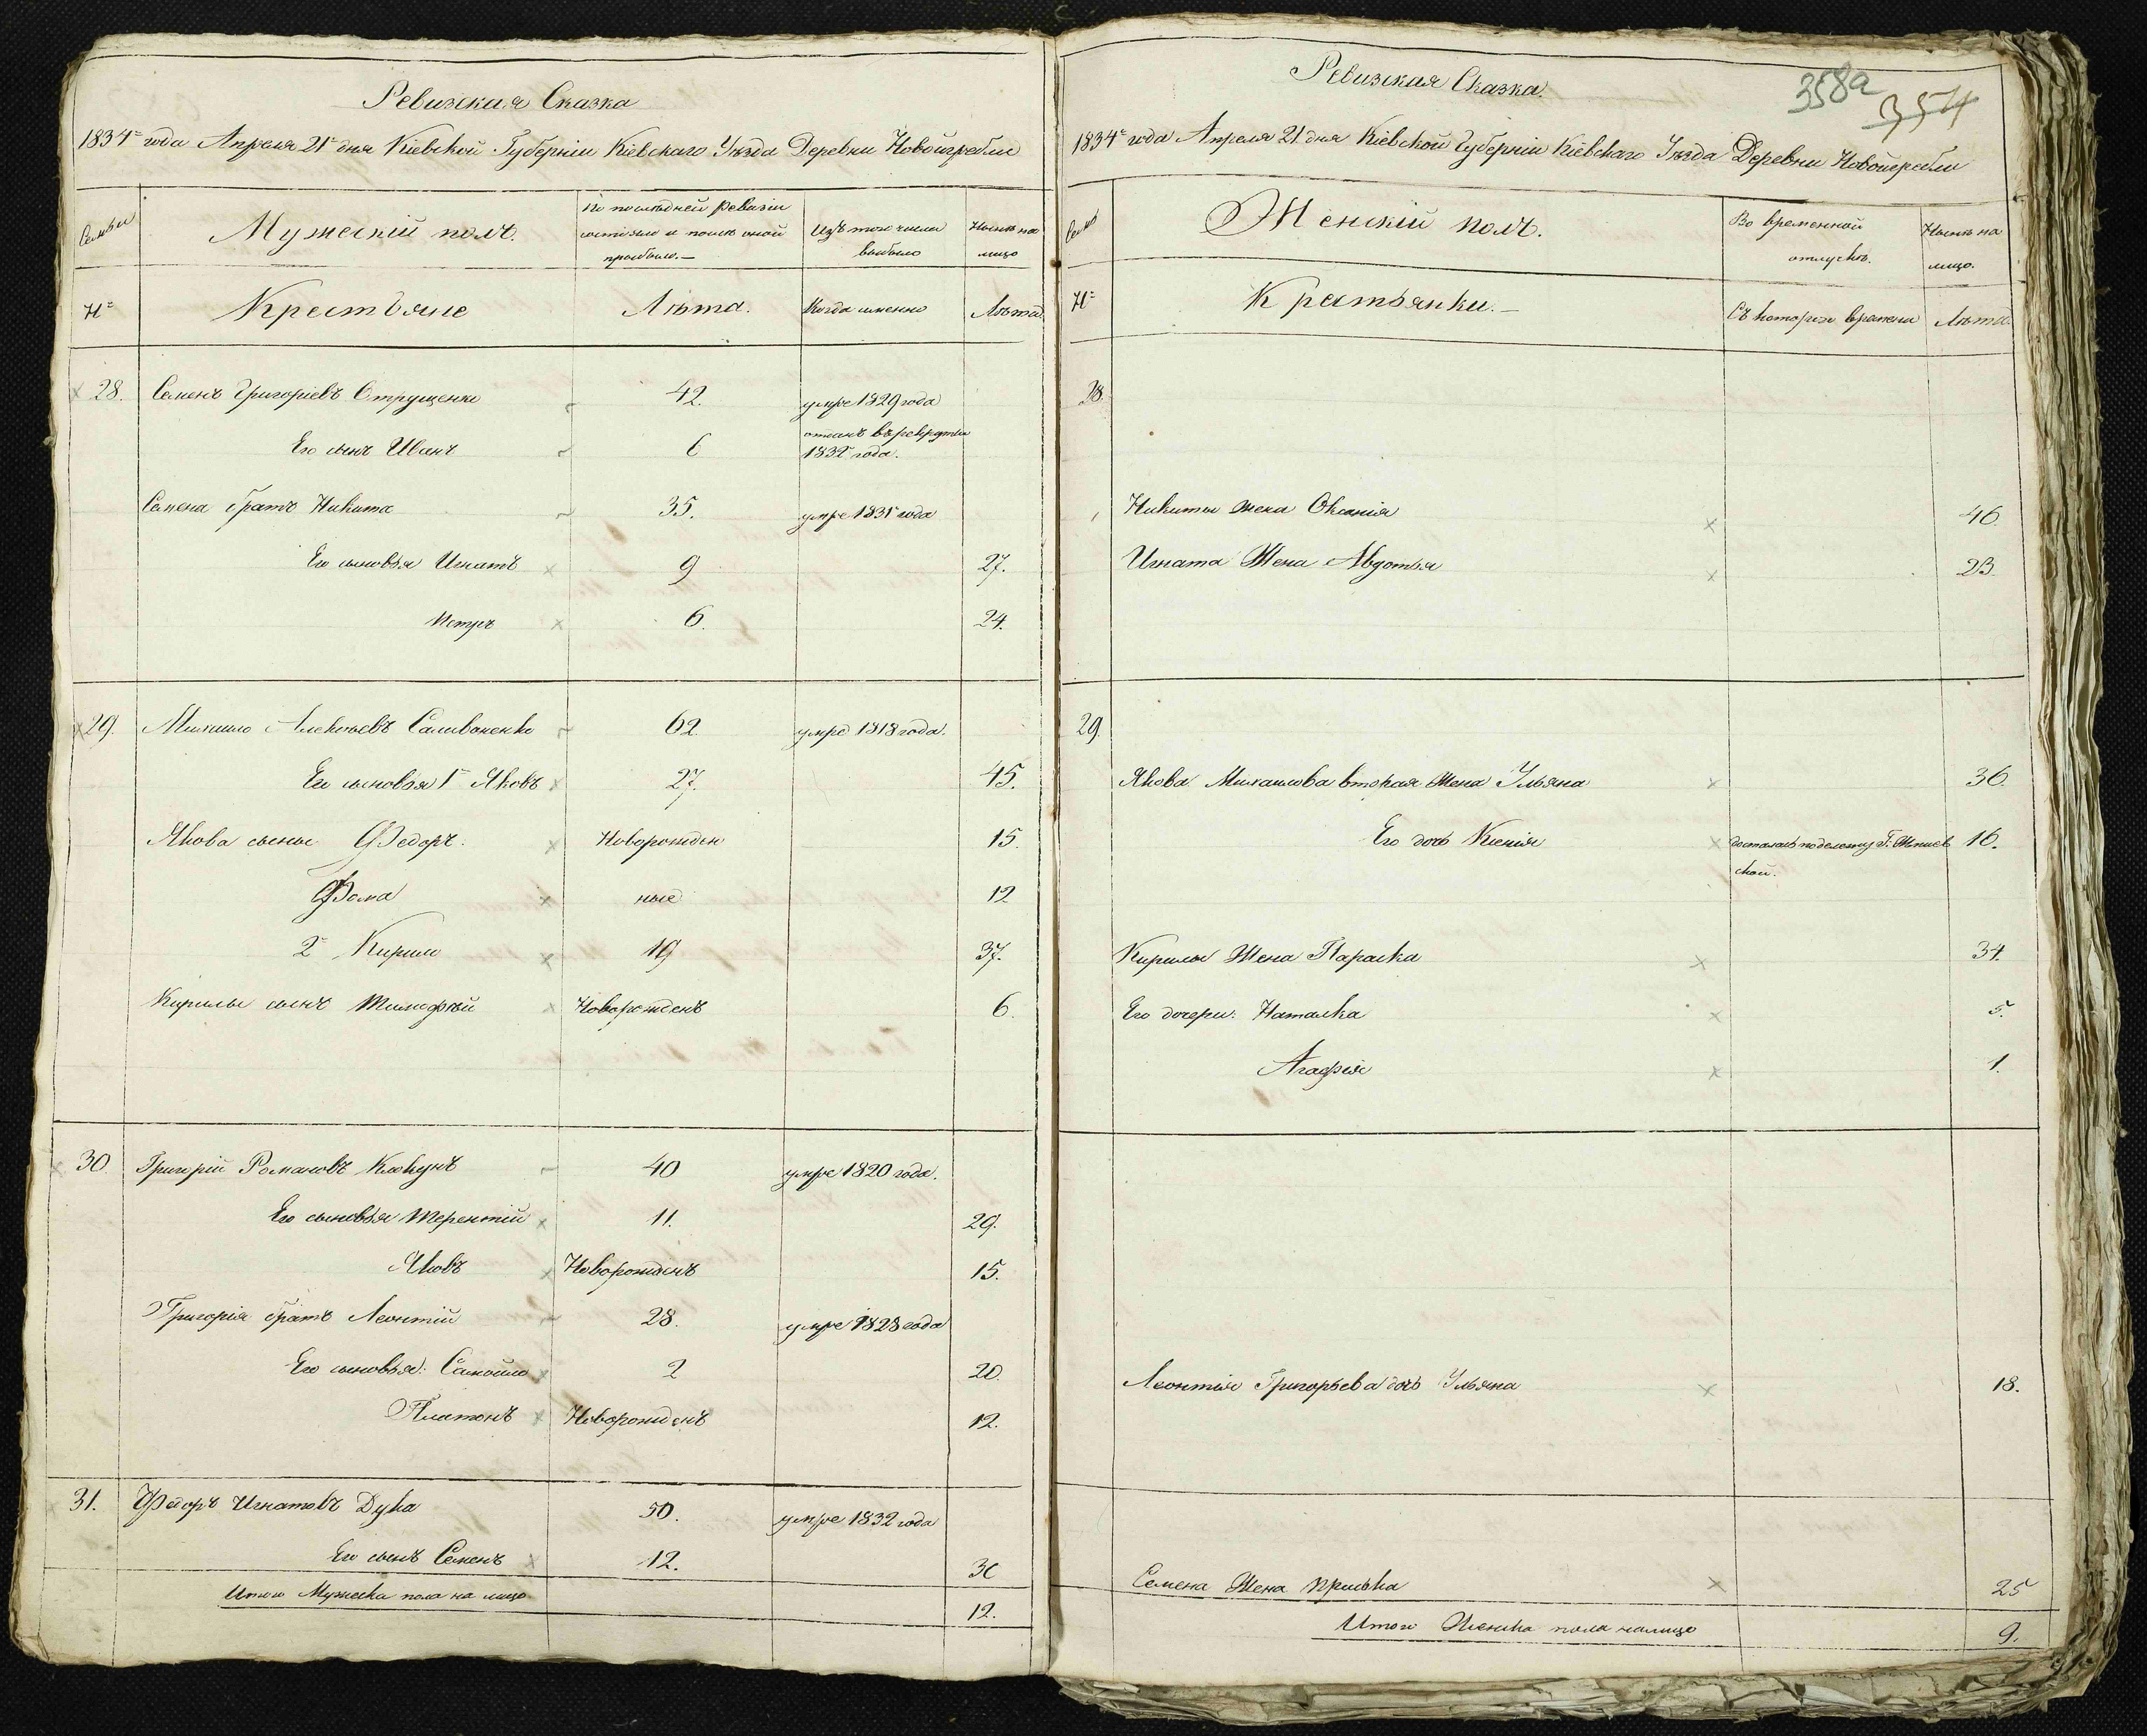 Ревизская Сказка
1834го года Апреля 21го дня Кіевской Губерніи Кіевскаго Уѣзда Деревни Новойгребли
Семьи
Мужескій полъ.
По послѣдней ревизіи
состояло и послѣ оной
прибыло.—
Изъ того числа
выбыло
Нынѣ на
лицо
№
Крестьяне
Лѣта.
Когда именно
Лѣта.
28. Семенъ Григорьевъ Струценко 42. умре 1829 года
Его сынъ Иванъ 6 отданъ въ рекруты
1832 года.
Семена братъ Никита 35. умре 1831 года
Его сыновья Игнатъ 9 27.
Петръ 6. 24.
29. Михайло Алексѣевъ Саливоненко 62 умре 1818 года.
Его сыновья 1й Яковъ 27. 45.
Якова сыны Федоръ. Новорожден 15.
Фома ные 12
2й Кирило 19 37.
Кирилы сынъ Тимофѣй Новорожденъ 6.
30. Григорій Романовъ Клокунъ 40 умре 1820 года.
Его сыновья Терентій 11. 29.
Яковъ Новорожденъ 15.
Григорія братъ Леонтій 28. умре 1828 года
Его сыновья: Самойло 2 20.
Платонъ Новорожденъ 12.
31. Федоръ Игнатовъ Дука 50. умре 1832 года
Его сынъ Семенъ 12. 30
Итого Мужеска пола на лицо 12.
358а
354
Ревизская Сказка.
1834го года Апреля 21 дня Кіевской Губерніи Кіевскаго Уѣзда Деревни Новойгребли
Семьи
Женскій полъ.
Во временной
отлучкѣ.
Нынѣ на
лицо.
№
Крестьянки.—
Съ котораго времени
Лѣта.
28.
Никиты жена Оксанія 46.
Игната Жена Авдотья 23.
29.
Якова Михайлова вторая Жена Ульяна 36.
Его дочь Ксенія досталась поделому Г: 16.
ской.
Кирилы Жена Параска 34.
Его дочери: Наталка 5.
Агафія 1.
Леонтія Григорьева дочь Ульяна 18.
Семена Жена Приська 25
Итого Женска пола налицо 9.